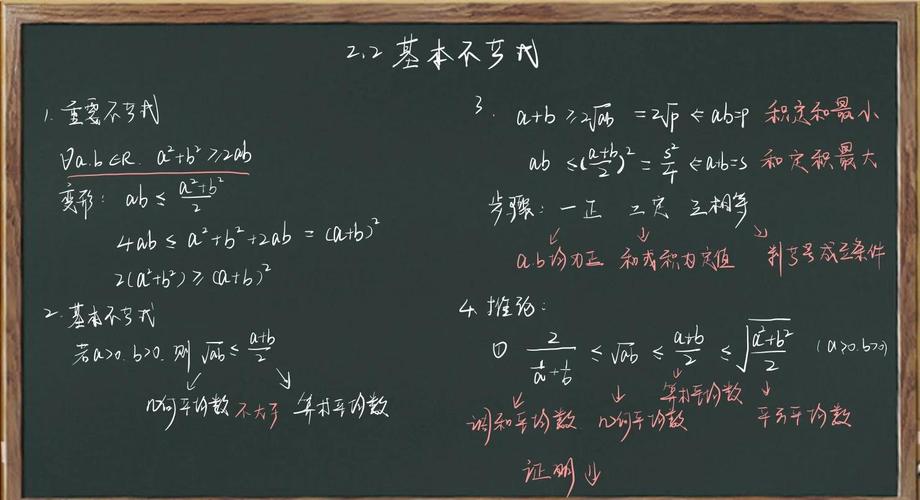 2.2 基本不等式
1. 重要不等式
∀a.b∈R. a²+b²≥2ab
变形: ab ≤ (a²+b²)/2
4ab ≤ a²+b²+2ab = (a+b)²
2(a²+b²) ≥ (a+b)²
2. 基本不等式
若a>0. b>0. 则 √ab ≤ (a+b)/2
几何平均数 不大于 算术平均数
3. a+b ≥ 2√ab = 2√p ⇐ ab=p 积定和最小
ab ≤ ((a+b)/2)² = s²/4 ⇐ a+b=s 和定积最大
步骤: 一正 二定 三相等
a.b均为正 和或积为定值 判等号成立条件
4. 推论:
① 2/(1/a+1/b) ≤ √ab ≤ (a+b)/2 ≤ √((a²+b²)/2) (a>0. b>0)
调和平均数 几何平均数 算术平均数 平方平均数
证明 ↓